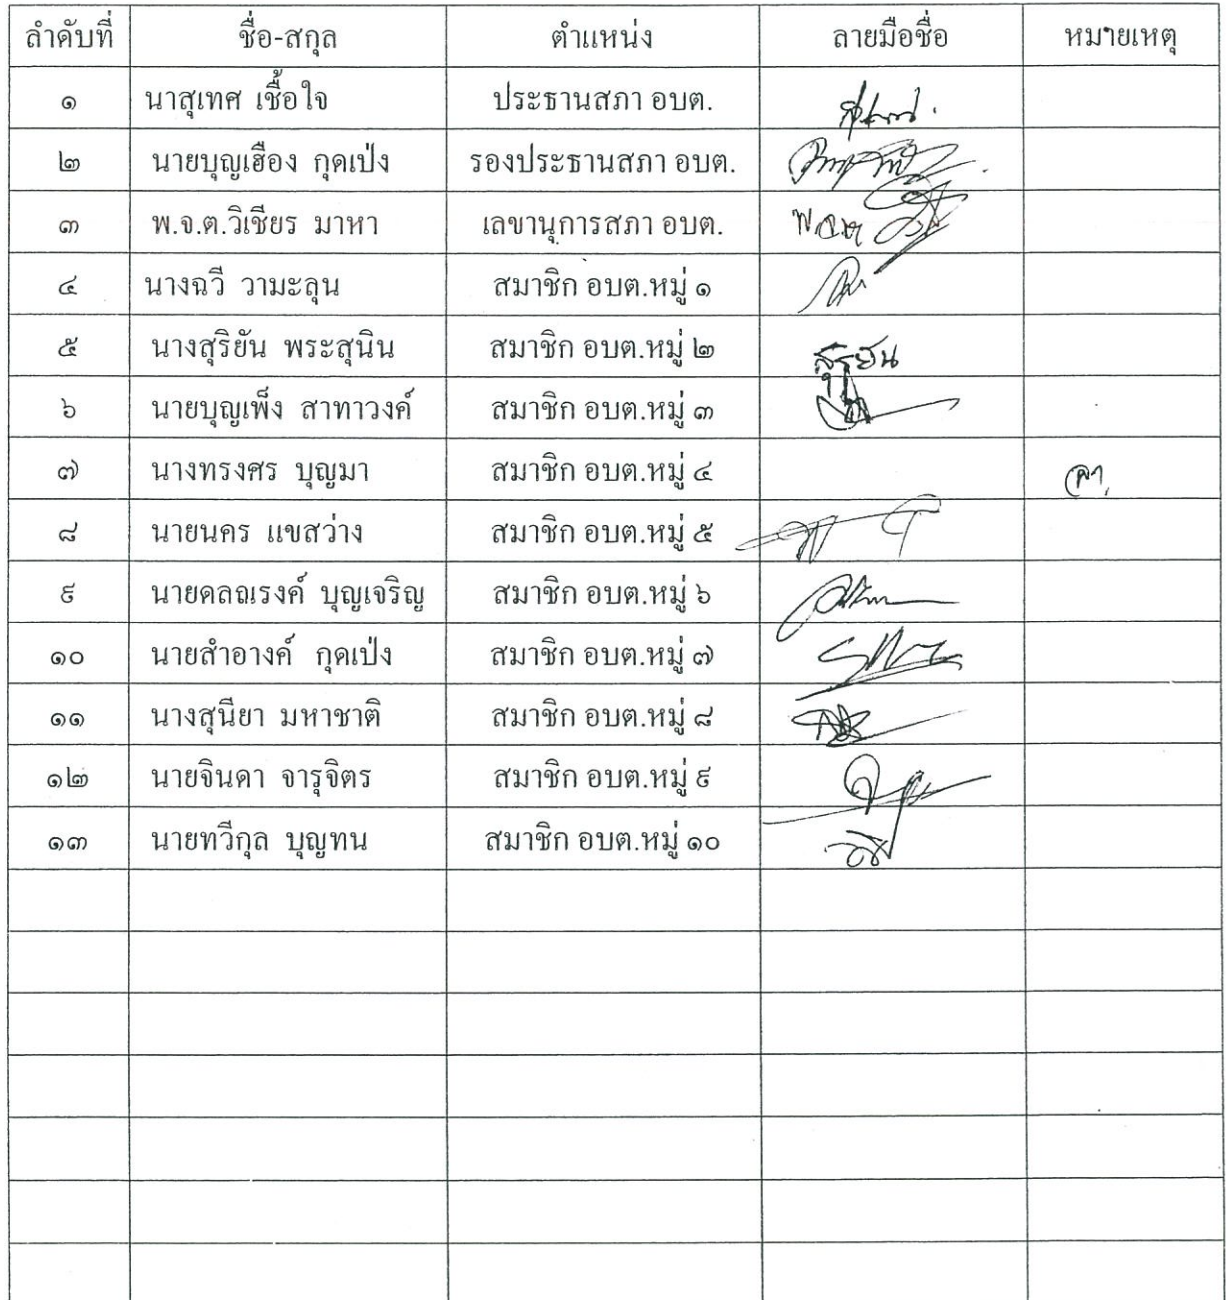 ลำดับที่ ชื่อ-สกุล ตำแหน่ง ลายมือชื่อ หมายเหตุ
๑ นาสุเทศ เชื้อใจ ประธานสภา อบต.
๒ นายบุญเฮือง กุดเป่ง รองประธานสภา อบต.
๓ พ.จ.ต.วิเชียร มาหา เลขานุการสภา อบต. พ.จ.ต
๔ นางฉวี วามะลุน สมาชิก อบต.หมู่ ๑
๕ นางสุริยัน พระสุนิน สมาชิก อบต.หมู่ ๒ สุริยัน
๖ นายบุญเพ็ง สาทาวงค์ สมาชิก อบต.หมู่ ๓
๗ นางทรงศร บุญมา สมาชิก อบต.หมู่ ๔ ลา
๘ นายนคร แขสว่าง สมาชิก อบต.หมู่ ๕
๙ นายคลณรงค์ บุญเจริญ สมาชิก อบต.หมู่ ๖
๑๐ นายสำอางค์ กุดเป่ง สมาชิก อบต.หมู่ ๗
๑๑ นางสุนียา มหาชาติ สมาชิก อบต.หมู่ ๘
๑๒ นายจินดา จารุจิตร สมาชิก อบต.หมู่ ๙
๑๓ นายทวีกุล บุญทน สมาชิก อบต.หมู่ ๑๐